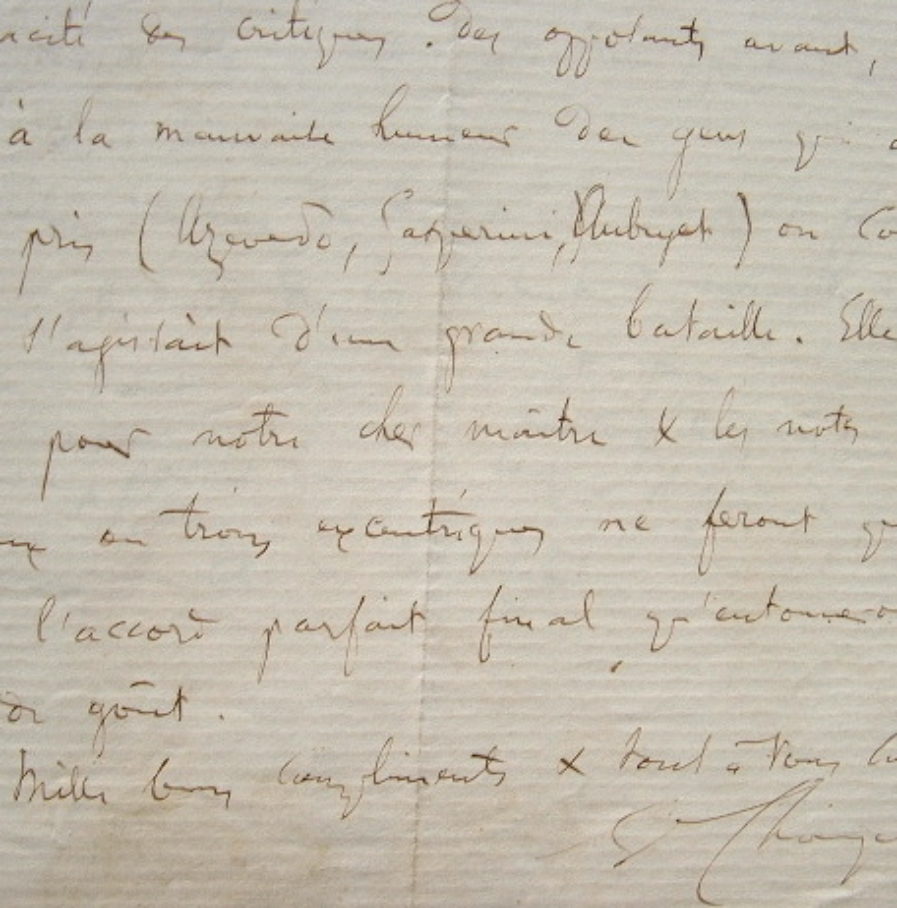 acité des critiques. Des opposants avant,
à la mauvaise humeur des gens qui
pris (Azevedo, Gasperini, Aubryet) on Co
s'agissait d'une grande bataille. Elle
pour notre cher maître & les notes
ux ou trois excentriques ne feront qu
l'accord parfait final qu'entonnero
on goût.
Mille bons compliments & tout à vous